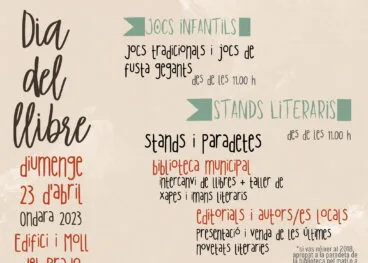 Dia
del
llibre
diumenge
23 d'abril
Ondara 2023
Edifici i Moll
JOCS INFANTILS
jocs tradicionals i jocs de
fusta gegants
des de les 11.00 h
STANDS LITERARIS
des de les 11.00 h
stands i paradetes
biblioteca municipal
intercanvi de llibres + taller de
xapes i imans literaris
editorials i autors/es locals
presentació i venda de les últimes
novetats literaries
*si vas nàixer al 2018,
apropat a la paradeta de
la biblioteca pel matí o a